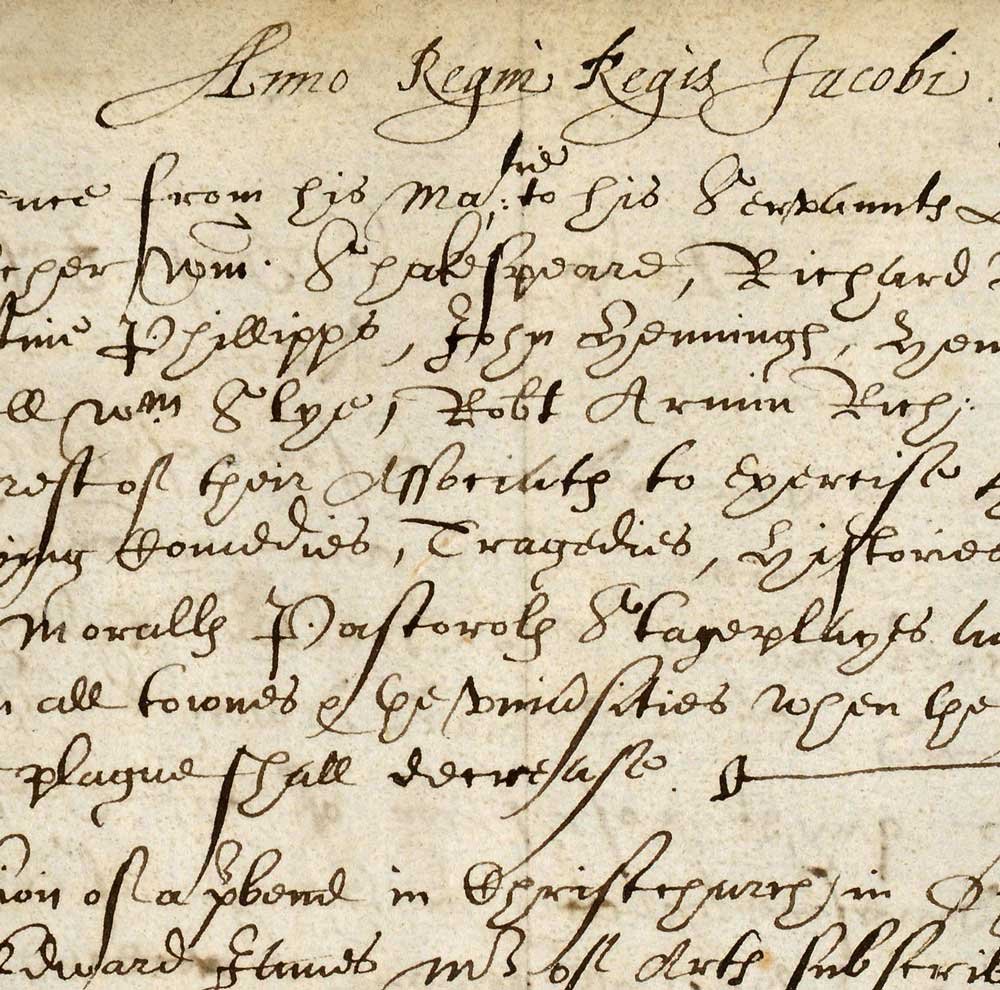 Anno Regni Regis Jacobi
ence from his Ma:tie to his Servaunts L
cher Wm. Shakespeare, Richard B
tine Phillipps, John Henninghs, Hen
ll Wm Slye, Robt Armin Rich:
rest of their Associats to exercise
ying Comedies, Tragedies, Histories
Moralls Pastorols Stageplayes an
n all townes & the universities when the
plague shall decrease.
ion of a pbend in Christchurch, in
Edward James Mr of Arts subscrib